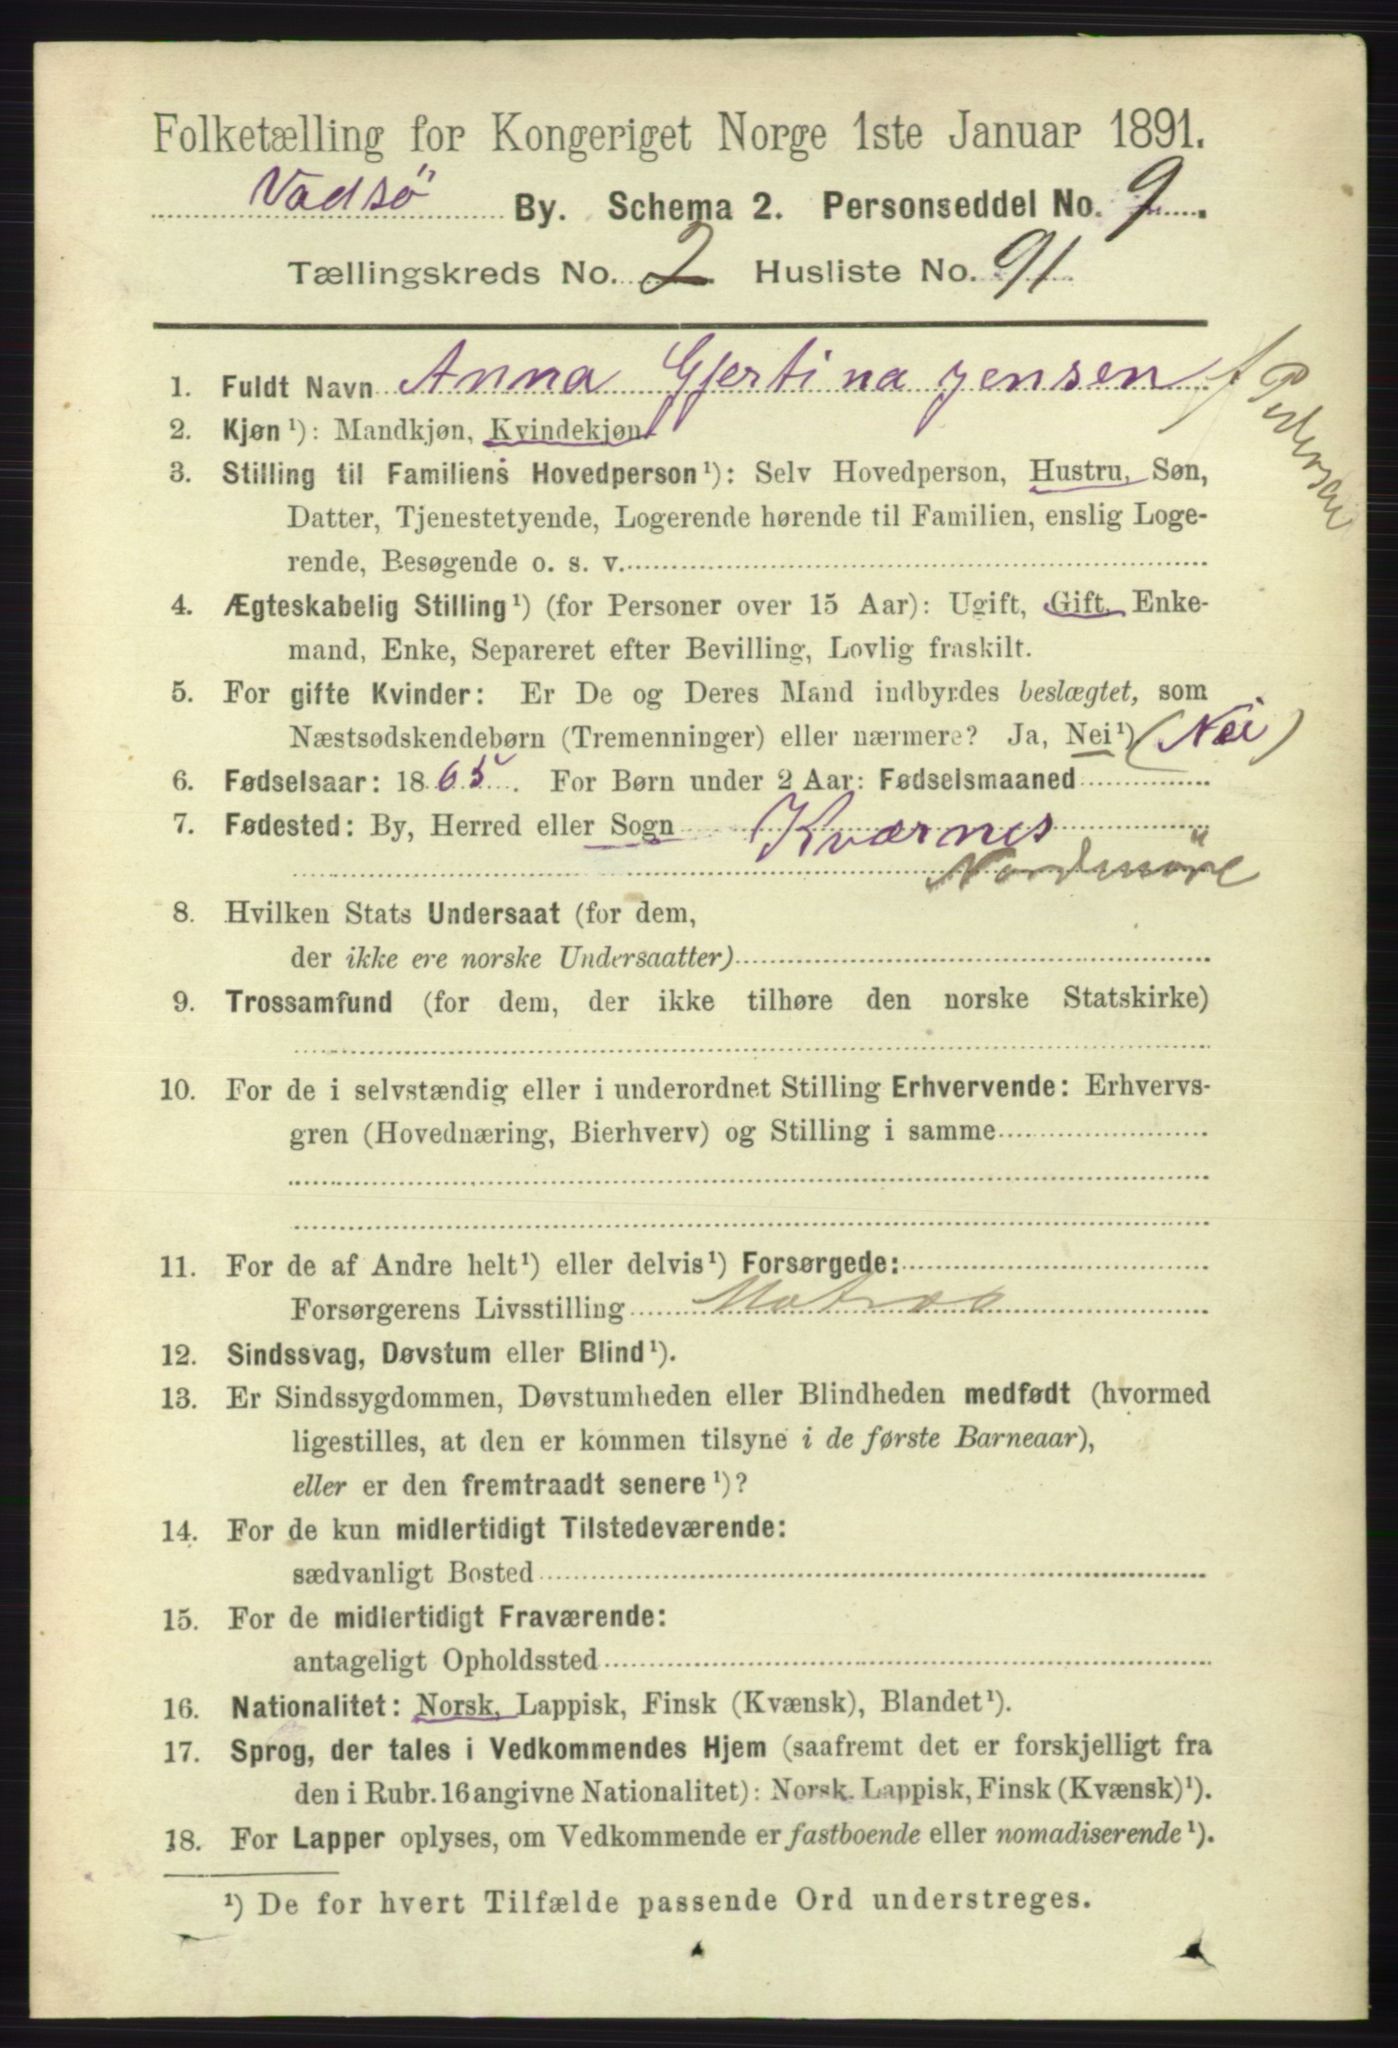 Folketælling for Kongeriget Norge 1ste Januar 1891.
Vadsö By. Schema 2. Personseddel No. 9.
Tællingskreds No. 2 Husliste No. 91
1. Fuldt Navn Anna Gjertina Jensen f. Pedersen
2. Kjøn ¹): Mandkjøn, Kvindekjøn.
3. Stilling til Familiens Hovedperson ¹): Selv Hovedperson, Hustru, Søn,
Datter, Tjenestetyende, Logerende hørende til Familien, enslig Loge-
rende, Besøgende o. s. v.
4. Ægteskabelig Stilling ¹) (for Personer over 15 Aar): Ugift, Gift, Enke-
mand, Enke, Separeret efter Bevilling, Lovlig fraskilt.
5. For gifte Kvinder: Er De og Deres Mand indbyrdes beslægtet, som
Næstsødskendebørn (Tremenninger) eller nærmere? Ja, Nei ¹) (Nei)
6. Fødselsaar: 1865. For Børn under 2 Aar: Fødselsmaaned
7. Fødested: By, Herred eller Sogn Kværnes
Nordmöre
8. Hvilken Stats Undersaat (for dem,
der ikke ere norske Undersaatter)
9. Trossamfund (for dem, der ikke tilhøre den norske Statskirke)
10. For de i selvstændig eller i underordnet Stilling Erhvervende: Erhvervs-
gren (Hovednæring, Bierhverv) og Stilling i samme
11. For de af Andre helt ¹) eller delvis ¹) Forsørgede:
Forsørgerens Livsstilling Matros
12. Sindssvag, Døvstum eller Blind ¹).
13. Er Sindssygdommen, Døvstumheden eller Blindheden medfødt (hvormed
ligestilles, at den er kommen tilsyne i de første Barneaar),
eller er den fremtraadt senere ¹)?
14. For de kun midlertidigt Tilstedeværende:
sædvanligt Bosted
15. For de midlertidigt Fraværende:
antageligt Opholdssted
16. Nationalitet: Norsk, Lappisk, Finsk (Kvænsk), Blandet ¹).
17. Sprog, der tales i Vedkommendes Hjem (saafremt det er forskjelligt fra
den i Rubr. 16 angivne Nationalitet): Norsk, Lappisk, Finsk (Kvænsk) ¹).
18. For Lapper oplyses, om Vedkommende er fastboende eller nomadiserende ¹).
¹) De for hvert Tilfælde passende Ord understreges.